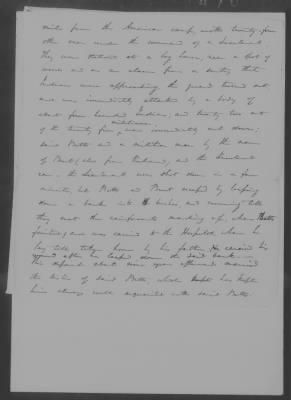 miles from the American camp, with twenty-four
other men under the command of a Lieutenant.
They were stationed at a log house, near a spot of
woods and on an alarm from a sentry that
Indians were approaching the guard turned out,
and was immediately attacked by a body of
about four hundred Indians, and twenty two out
militiamen
of the twenty four were immediately cut down;
said Potts and a militia man by the name
of Brent (also from Richmond) and the Lieutenant
ran – the Lieutenant was shot down in a few
minutes, but Potts and Brent escaped by leaping
down a bank into the bushes and running till
they met the reinforcements marching up, when Potts
fainted; and was carried to the Hospital where he
lay till taken home by his father, He received his
wound after he leaped down the said bank —
The deponent about ten years afterwards married
the sister of said Potts; which kept
him always well acquainted with said Potts